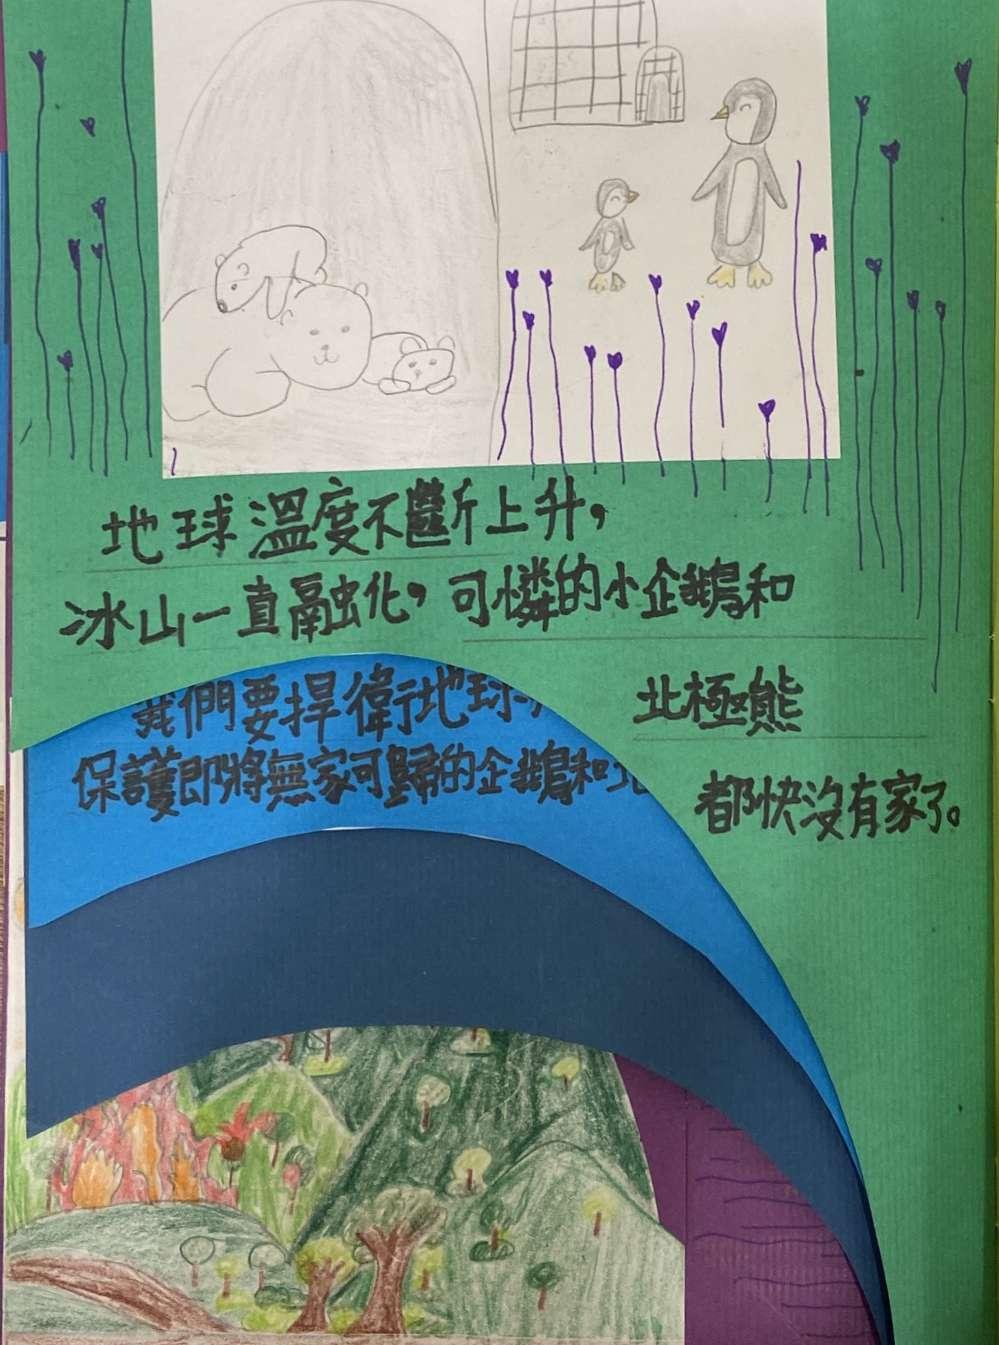 地球溫度不斷上升，
冰山一直融化，可憐的小企鵝和
北極熊
都快沒有家了。
我們要捍衛地球
保護即將無家可歸的企鵝和北